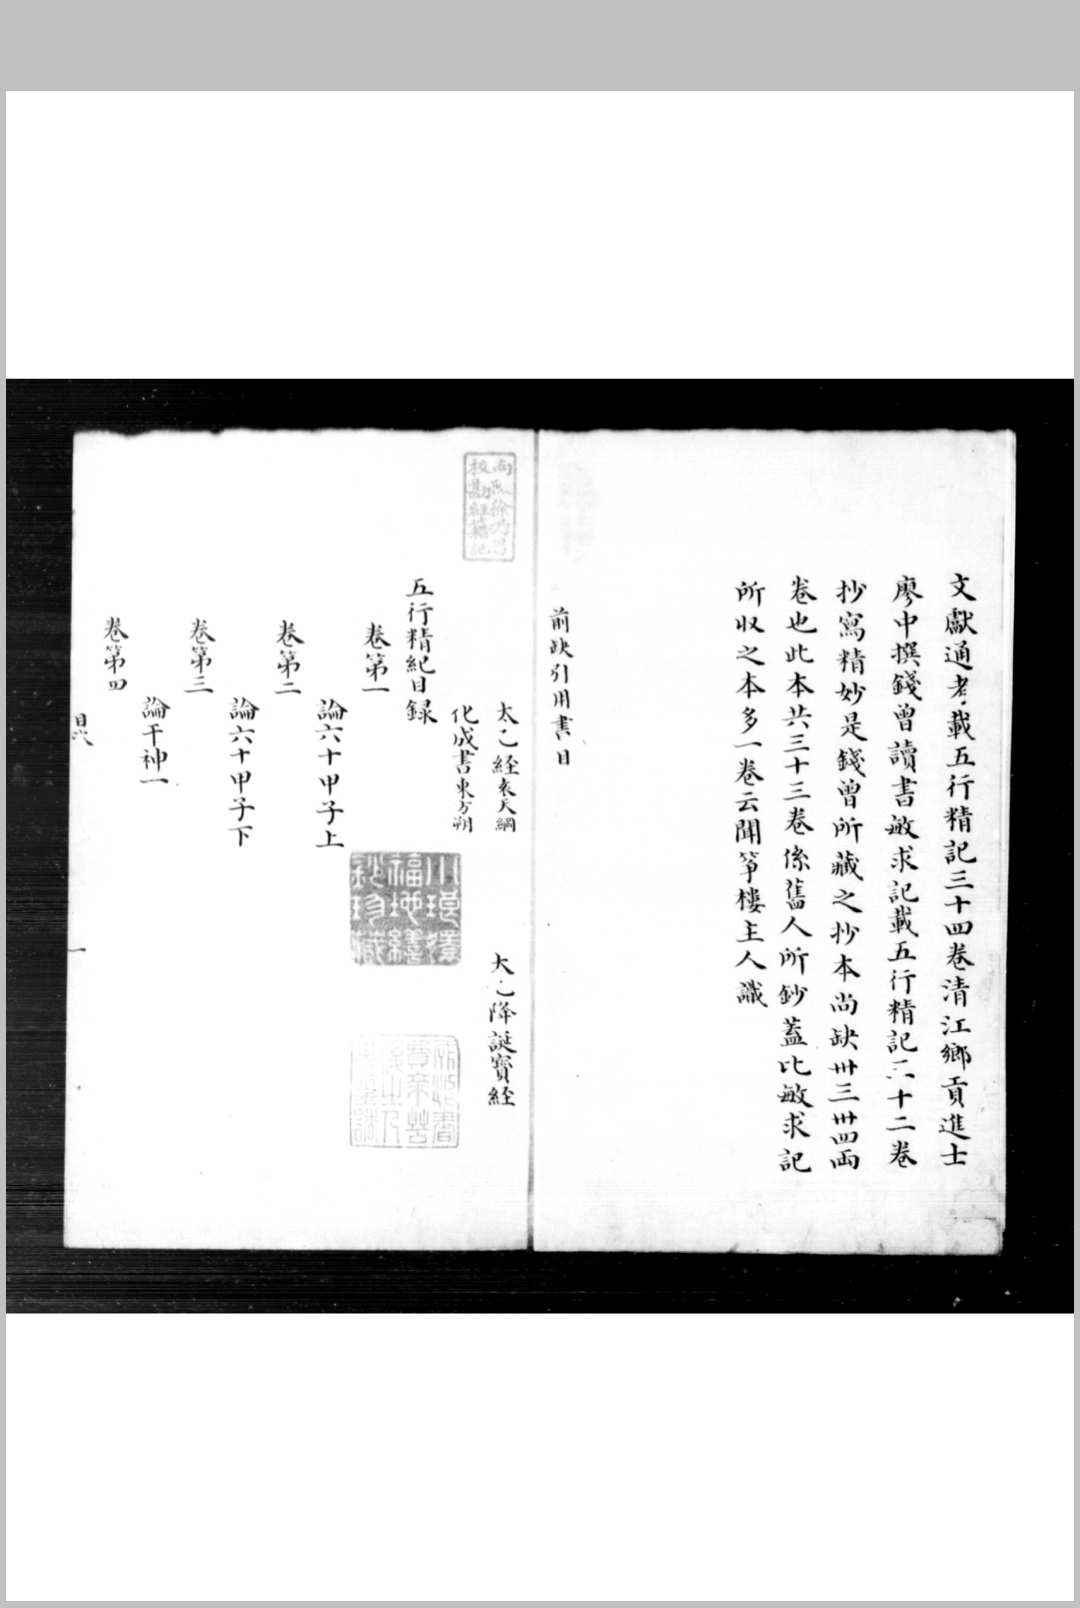 文獻通考載五行精記三十四卷清江鄉貢進士
廖中撰錢曾讀書敏求記載五行精記三十二卷
抄寫精妙是錢曾所藏之抄本尚缺卅三卅四兩
卷也此本共三十三卷係舊人所鈔蓋比敏求記
所收之本多一卷云聞箏樓主人識
前缺引用書目
太乙經袁天綱
太乙降誕寶經
化成書東方朔
五行精紀目錄
卷第一
論六十甲子上
卷第二
論六十甲子下
卷第三
論干神一
卷第四
目六
一
徐乃昌
校勘經籍記
福地
珍藏